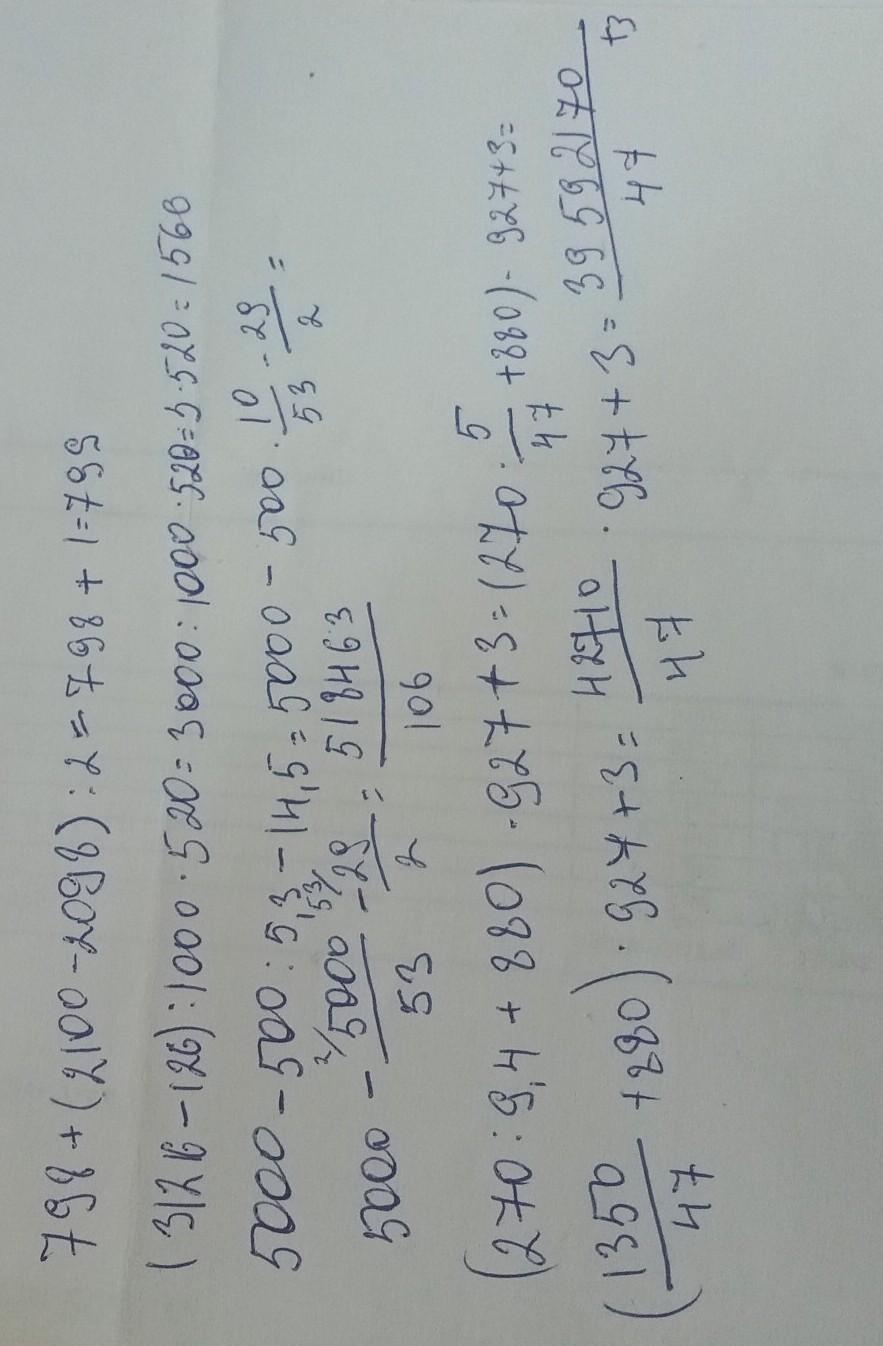 798 + (2100 - 2098) : 2 = 798 + 1 = 799
(3126 - 126) : 1000 · 520 = 3000 : 1000 · 520 = 3 · 520 = 1560
5000 - 500 : 5,3 - 14,5 = 5000 - 500 · 10/53 - 29/2 =
5000 - 5000/53 - 29/2 = 518463/106
(270 : 9,4 + 880) · 927 + 3 = (270 · 5/47 + 880) · 927 + 3 =
(1350/47 + 880) · 927 + 3 = 42710/47 · 927 + 3 = 39592170/47 + 3